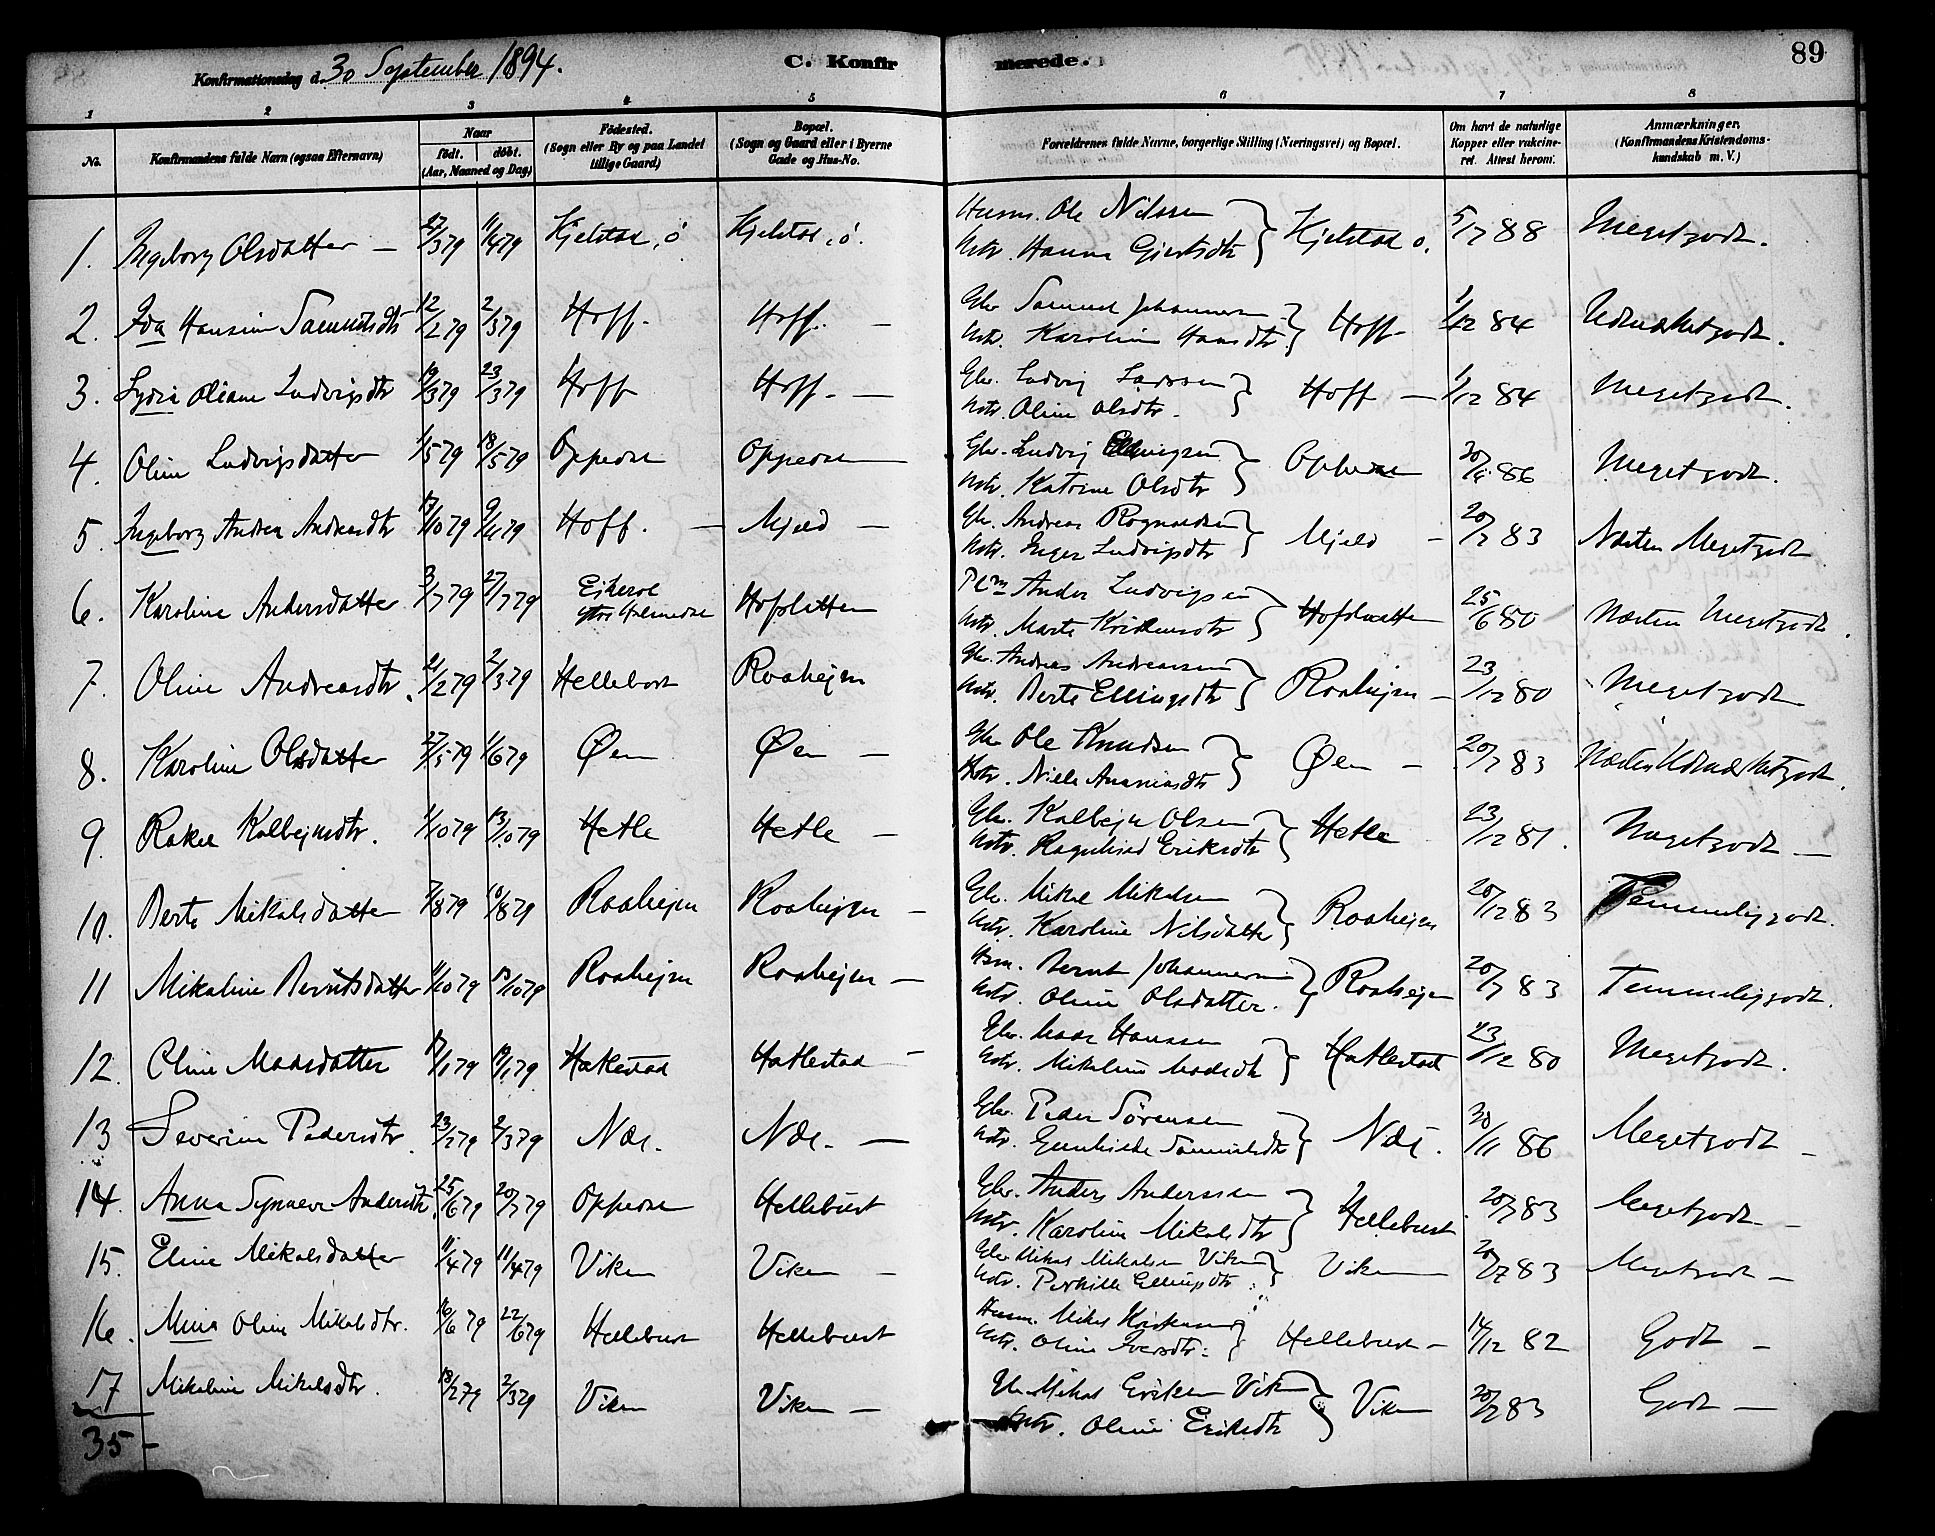 Konfirmationsdag d. 30 September 1894.
C. Konfirmerede.
89
1 2 3 4 5 6 7 8
No. | Konfirmandens fulde Navn (ogsaa Efternavn) | Naar født. døbt. (Aar, Maaned og Dag) | Fødested. (Sogn eller By og paa Landet tillige Gaard) | Bopæl. (Sogn og Gaard eller i Byerne Gade og Hus-No. | Forældrenes fulde Navne, borgerlige Stilling (Næringsvei) og Bopæl. | Om havt de naturlige Kopper eller vakcineret. Attest herom. | Anmærkninger. (Konfirmandens Kristendomskundskab m. V.)
1. Ingeborg Olsdatter — 27/3 79 11/4 79 Kjelstad, ö Kjelstad, ö. Husm. Ole Nilssen Kjelstad ö. 5/7 88 Megetgodt.
Hstr. Hanna Gjertsdtr
2. Ida Hansine Samuelsdtr 12/2 79 2/3 79 Hoff. Hoff. — Gbr Samuel Johannesen Hoff 1/12 84 Udmerketgodt.
Hstr. Karoline Hansdtr
3. Lydia Oliane Ludvigsdtr 19/3 79 23/3 79 Hoff Hoff. — Gbr. Ludvig Larssen Hoff — 1/12 84 Megetgodt.
Hstr. Oline Olsdtr.
4. Oline Ludvigsdatter 1/5 79 18/5 79 Oppedal Oppedal Gbr. Ludvig Ellingsen 86 Megetgodt.
Hstr. Katrine Olsdtr
5. Ingeborg Andrea Andreasdtr 9/11 79 Hoff. — Mjeld — Gbr. Andreas Rognaldsen Mjeld — 20/7 83 Næsten Megetgodt
Hstr. Inger Ludvigsdtr
6. Karoline Andersdatter 3/7 79 27/7 79 Hofsletten Anders Ludvigsen 25/6 80 Næsten Megetgodt.
Hstr. Marte Kristensdtr
7. Oline Andreasdtr. 21/2 79 2/3 79 Hellebost Raahejen Gbr. Andreas Andreassen Raahejen — 23/12 80 Megetgodt
Hstr. Berte Ellingsdtr
8. Karoline Olsdatter 27/5 79 1/6 79 Øen Øen — Gbr Ole Knudsen Øen — 20/7 83 Næsten Udmerketgodt.
Hstr. Nille Ananiasdtr
9. Rakel Kolbejnsdtr. 1/10 79 13/10 79 Hetle Hetle — Gbr. Kolbejn Olsen Hetle 23/12 81. Megetgodt —
Hstr. Ragnhild Eriksdtr
10. Berte Mikalsdatter 7/8 79 10/8 79 Raahejen Raahejen — Gbr. Mikal Mikalsen Raahejen 20/12 83 Temmeliggodt.
Hstr. Karoline Nilsdatter
11 Mikaline Berntsdatter 11/10 79 13/10 79 Raahejen Raahejen — Hsm. Bernt Johannesen Raahejen 20/7 83 Temmeliggodt.
Hstr. Oline Olsdatter.
12. Oline Madsdatter 17/1 79 19/1 79 Hatlestad Hatlestad — Gbr. Mads Hanssen Hatlestad 23/12 80 Megetgodt.
Hstr. Mikaline Madsdtr
13 Severine Pedersdtr. 23/2 79 2/3 79 Nes. Nes. — Gbr. Peder Sörensen Nes. 30/11 86 Megetgodt —
Hstr. Gunhilde Samuelsdtr
14. Anna Synneve Andersdtr. 25/6 79 20/7 79 Oppedal Hellebust Gbr. Anders Anderssen Hellebust 20/7 83 Megetgodt —
Hstr. Karoline Mikalsdtr
15. Eline Mikalsdatter 11/4 79 11/4 79 Viken Viken — Gbr Mikal Mikalsen Viken Viken 20/7 83 Megetgodt —
Hstr. Pernille Ellingsdtr.
16. Mina Oline Mikalsdtr. 16/6 79 22/6 79 Hellebust Hellebust Husm. Mikal Kristensen Hellebust — 14/12 82 Godt —
Hstr. Oline Iversdtr.
17 Mikaline Mikalsdtr. 18/2 79 2/3 79 Viken Viken — Gbr Mikal Eriksen Viken Viken 20/7 83 Godt —
Hstr. Oline Eriksdtr
35 —